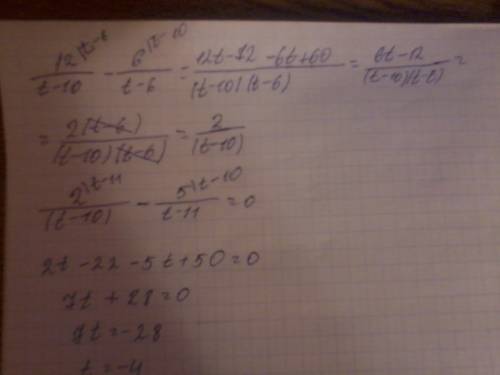 12^{|t-6} / (t-10) - 6^{|t-10} / (t-6) = (12t-72-6t+60) / ((t-10)(t-6)) = (6t-12) / ((t-10)(t-6)) =
= 2(t-6) / ((t-10)(t-6)) = 2 / (t-10)
2^{|t-11} / (t-10) - 5^{|t-10} / (t-11) = 0
2t-22-5t+50=0
7t+28=0
7t=-28
t=-4